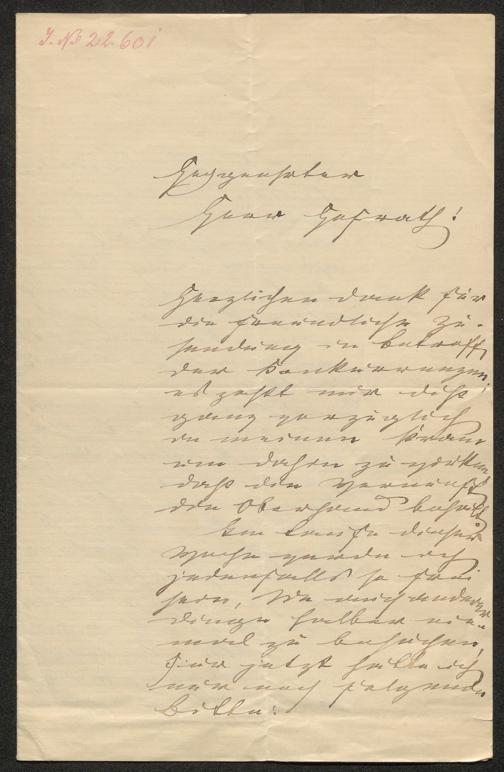 J. № 22.601
Hochgeehrter
Herr Hofrath!
Herzlichen dank für
die freundliche Zu-
sendung in betreff
der Konkurrenzen,
es paßt mir dieß
ganz vorzüglich
in meinen Kram
um dahin zu wirken
daß die Vernunft
die Oberhand behält.
Im laufe dieser
Woche werde ich
jedenfalls so frei
sein, Sie auch anderer
dinge halber ein-
mal zu besuchen,
für jetzt hätte ich
nur noch folgende
bitte: